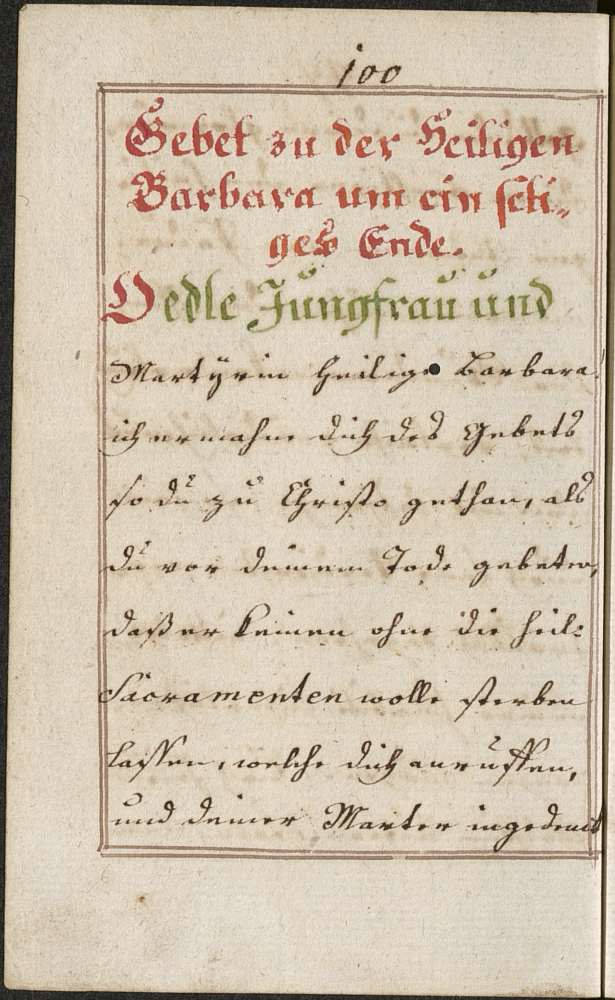 100
Gebet zu der Heiligen
Barbara um ein seli-
ges Ende.
O edle Jungfrau und
Martÿrin Heilige Barbara!
ich ermahne dich des Gebets
so du zu Christo gethan, als
du vor deinem Tode gebeten,
daß er keinen ohne die heil:
Sacramenten wolle sterben
lassen, welche dich anruffen,
und deiner Marter ingedenck